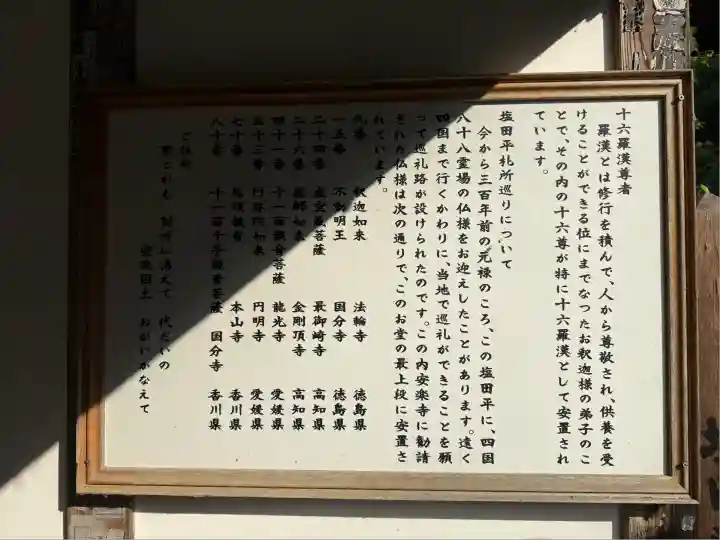 十六羅漢尊者
羅漢とは修行を積んで、人から尊敬され、供養を受
けることができる位にまでなつたお釈迦様の弟子のこ
とで、その内の十六尊が特に十六羅漢として安置され
ています。
塩田平札所巡りについて
今から三百年前の元禄のころ、この塩田平に、四国
八十八霊場の仏様をお迎えしたことがあります。遠く
四国まで行くかわりに、当地で巡礼ができることを願
って巡礼路が設けられたのです。この内安楽寺に勧請
された仏様は次の通りで、このお堂の最上段に安置さ
れています。
九番 釈迦如来 法輪寺 徳島県
一五番 不動明王 国分寺 徳島県
二十四番 虚空蔵菩薩 最御崎寺 高知県
二十六番 薬師如来 金剛頂寺 高知県
四十一番 十一面観音菩薩 龍光寺 愛媛県
五十三番 阿弥陀如来 円明寺 愛媛県
七十番 馬頭観音 本山寺 香川県
八十番 十一面千手観音菩薩 国分寺 香川県
ご詠歌
代だいの
おがいかなえて